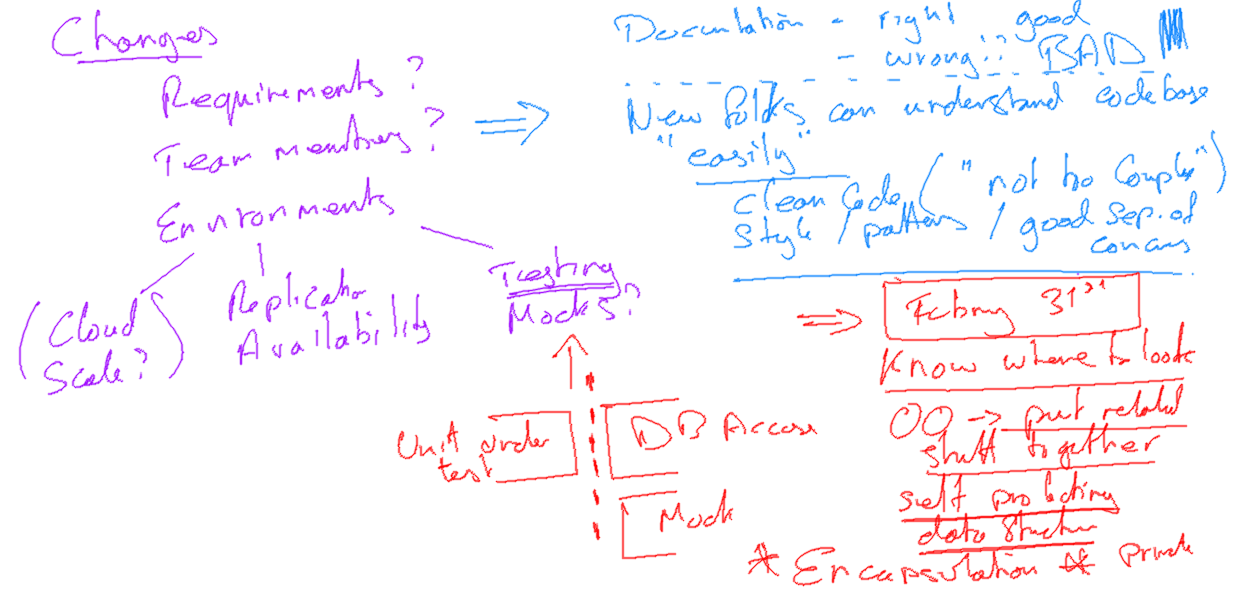 Changes
Requirements?
Team members?
Environments
(Cloud Scale?)
Replication
Availability
Testing
Mocks?
Unit under test
DB Access
Mock
Documentation - right good
- wrong!! BAD
New folks can understand codebase
"easily"
clean code ("not too complex")
style / patterns / good sep. of
concerns
⇒ February 31st
Know where to look
OO -> put related
stuff together
self protecting
data structure
* Encapsulation * private